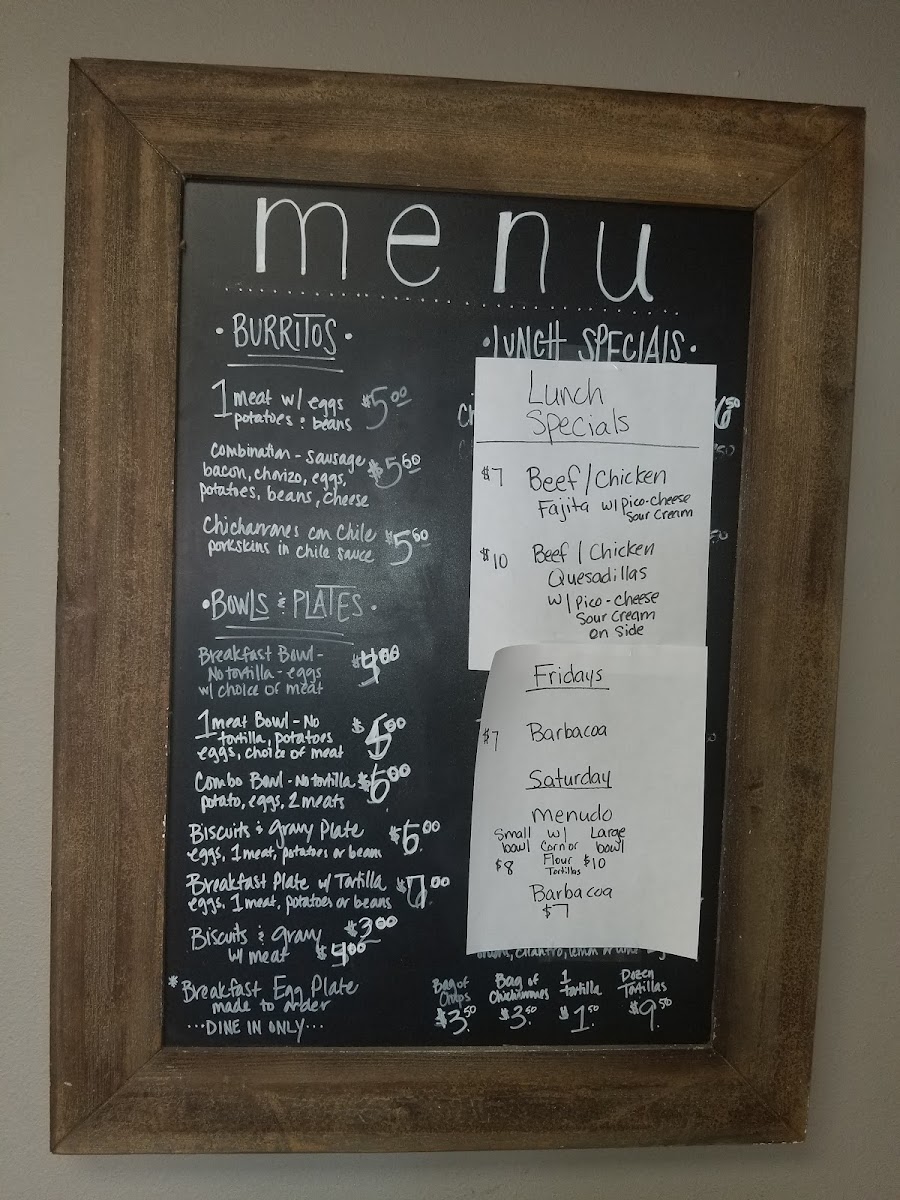 menu
• BURRITOS •
1 meat w/ eggs
potatoes & beans
$5.00
Combination - sausage
bacon, chorizo, eggs,
potatoes, beans, cheese
$5.60
Chicharrones con Chile
porkskins in chile sauce
$5.60
• BOWLS & PLATES •
Breakfast Bowl -
No tortilla - eggs
w/ choice of meat
1 meat Bowl - No
tortilla, potatoes
eggs, choice of meat
Combo Bowl - No tortilla
potato, eggs, 2 meats
$6.00
Biscuits & Gravy Plate
eggs, 1 meat, potatoes or beans
Breakfast Plate w/ Tortilla
eggs, 1 meat, potatoes or beans
Biscuits & Gravy $3.00
w/ meat $4.00
* Breakfast Egg Plate
made to order
...DINE IN ONLY...
• LUNCH SPECIALS •
Lunch
Specials
$7 Beef / Chicken
Fajita w/ Pico-cheese
Sour Cream
$10 Beef / Chicken
Quesadillas
w/ Pico-cheese
Sour Cream
on Side
Fridays
$7 Barbacoa
Saturday
menudo
Small w/ Large
bowl Corn or bowl
$8 Flour $10
Tortillas
Barbacoa
$7
Bag of
Chips
$3.50
Bag of
Chicharrones
$3.50
1
tortilla
$1.50
Dozen
Tortillas
$9.50